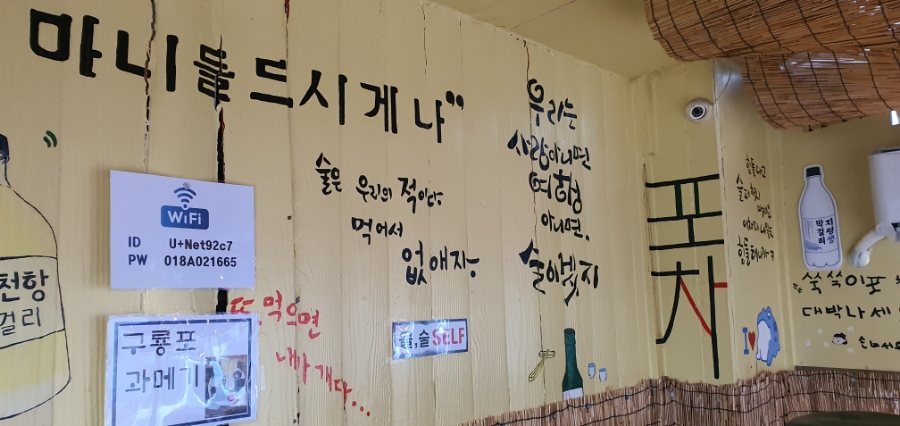 마니들드시게나"
술은 우리의 적이다
먹어서
없애자~
우리는
사랑아니면
여행
아니면.
술이겠지
포
차
WiFi
ID U+Net92c7
PW 018A021665
천항
걸리
구룡포
과메기
또 먹으면
내가 개다...
물,술 SELF
힘들다고
막걸리
지평생
I
쑥쑥이포
대박나세